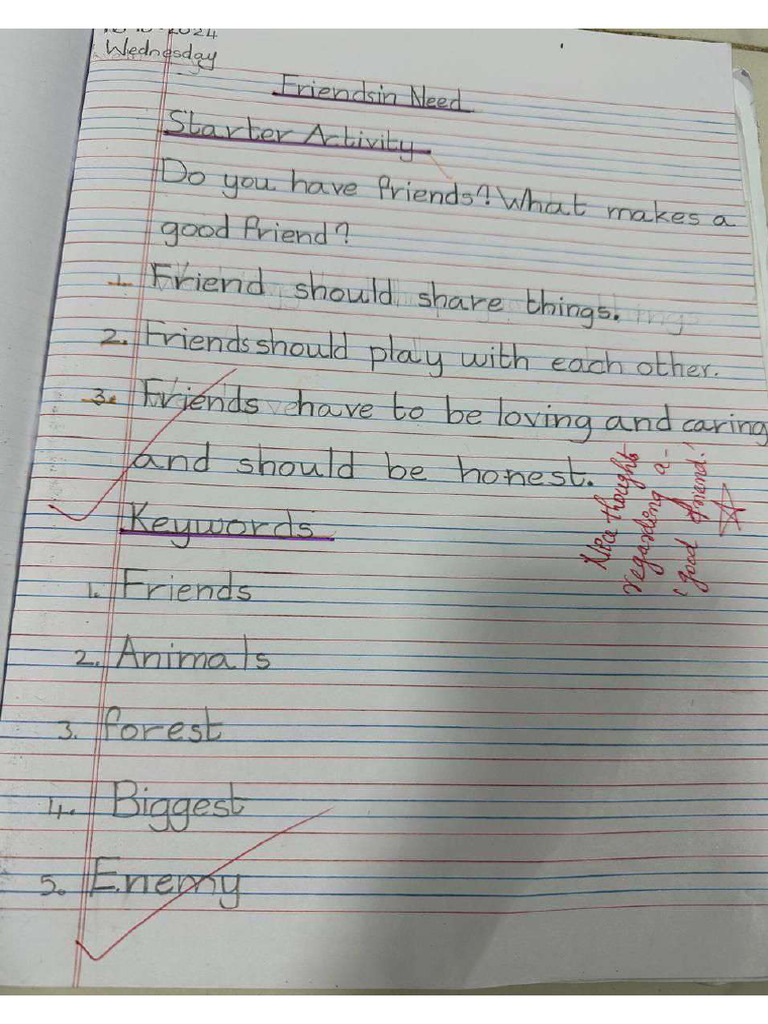 2024
Wednesday
Friendsin Need
Starter Activity
Do you have friends? What makes a
good friend?
1. Friend should share things.
2. Friends should play with each other.
3. Friends have to be loving and caring
and should be honest.
Nice thought
regarding a
'good friend.'
Keywords
1. Friends
2. Animals
3. forest
4. Biggest
5. Enemy